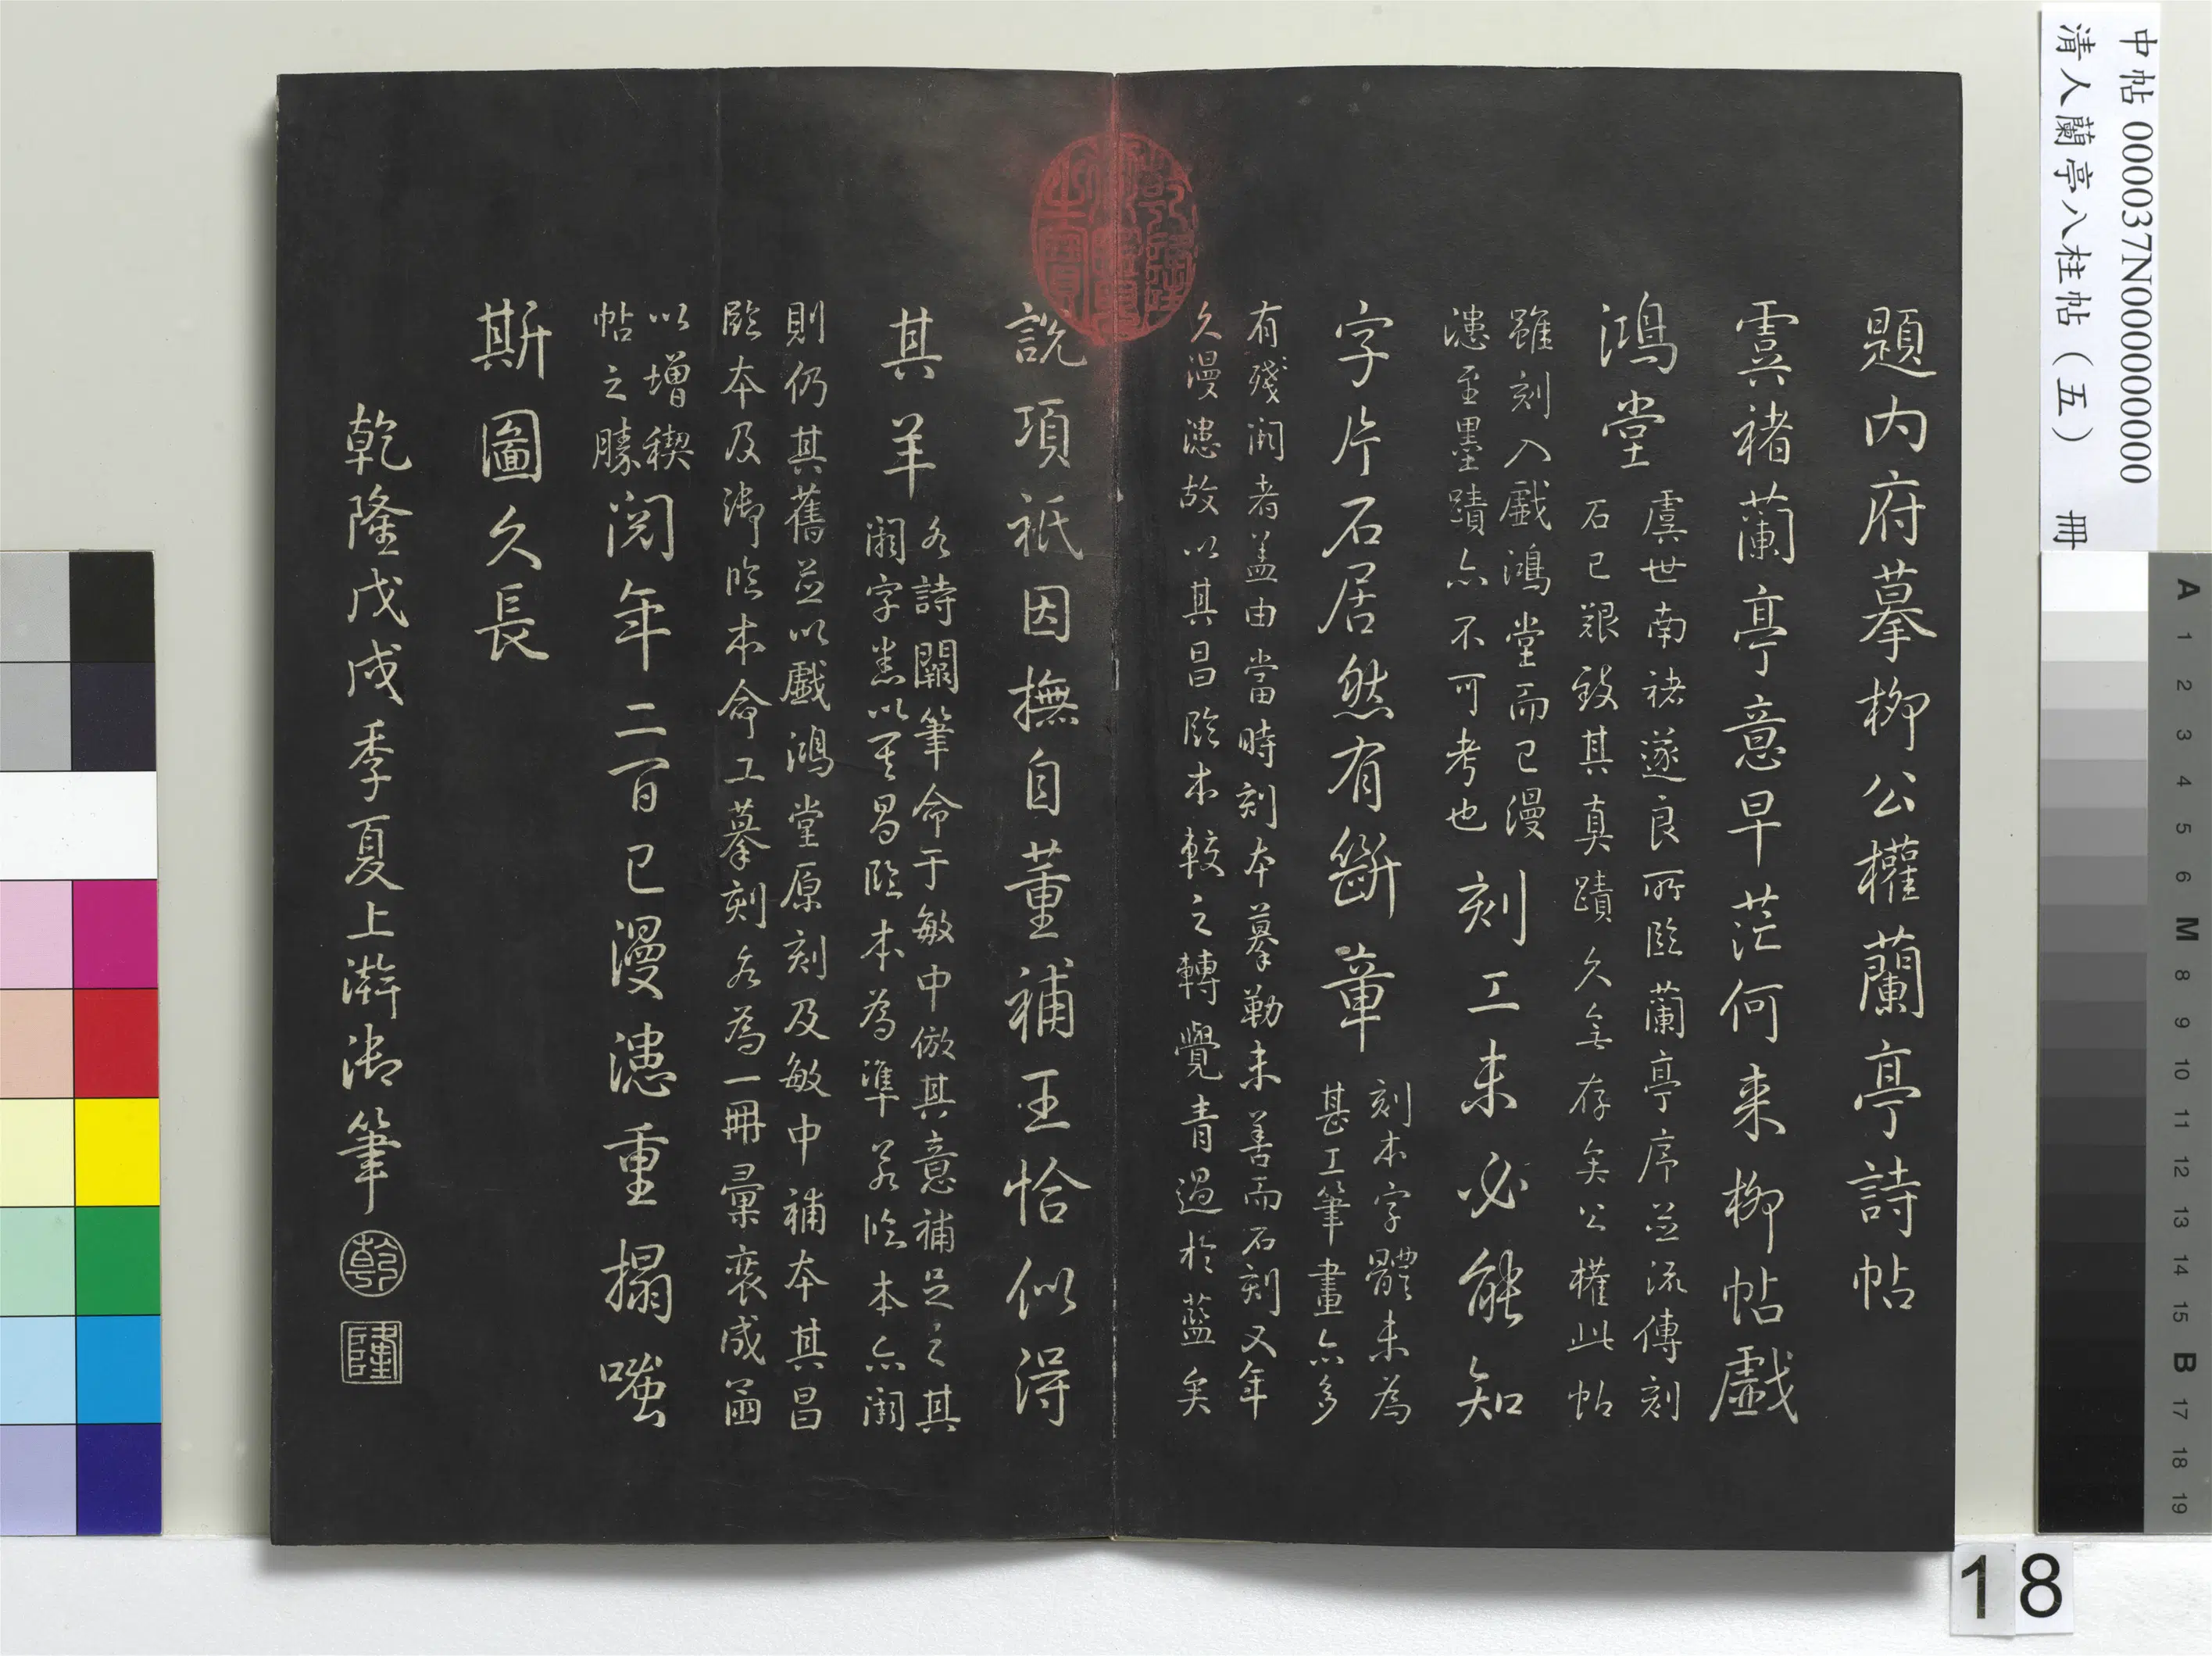 題内府摹柳公權蘭亭詩帖
虞褚蘭亭意早茫何来柳帖戲
鴻堂
虞世南褚遂良所臨蘭亭序並流傳刻
石已艱致其真蹟久無存矣公權此帖
雖刻入戲鴻堂而已漫
漶至墨蹟亦不可考也
刻工未必能知
字片石居然有斷章
刻本字體未為
甚工筆畫亦多
有殘闕者盖由當時刻本摹勒未善而石刻又年
久漫漶故以其昌臨本較之轉覺青過於藍矣
說項祇因撫自董補王恰似得
其羊
各詩闕筆命于敏中倣其意補足之其
闕字悉以其昌臨本為準若臨本亦闕
則仍其舊並以戲鴻堂原刻及敏中補本其昌
臨本及御臨本命工摹刻各為一冊彙裒成函
以增稧
帖之勝
閱年二百已漫漶重搨嗤
斯圖久長
乾隆戊戌季夏上澣御筆
乾
隆
乾隆御覽之寶
中帖 000037N000000000
清人蘭亭八柱帖（五） 冊
A 1 2 3 4 5 6 M 8 9 10 11 12 13 14 15 B 17 18 19
18